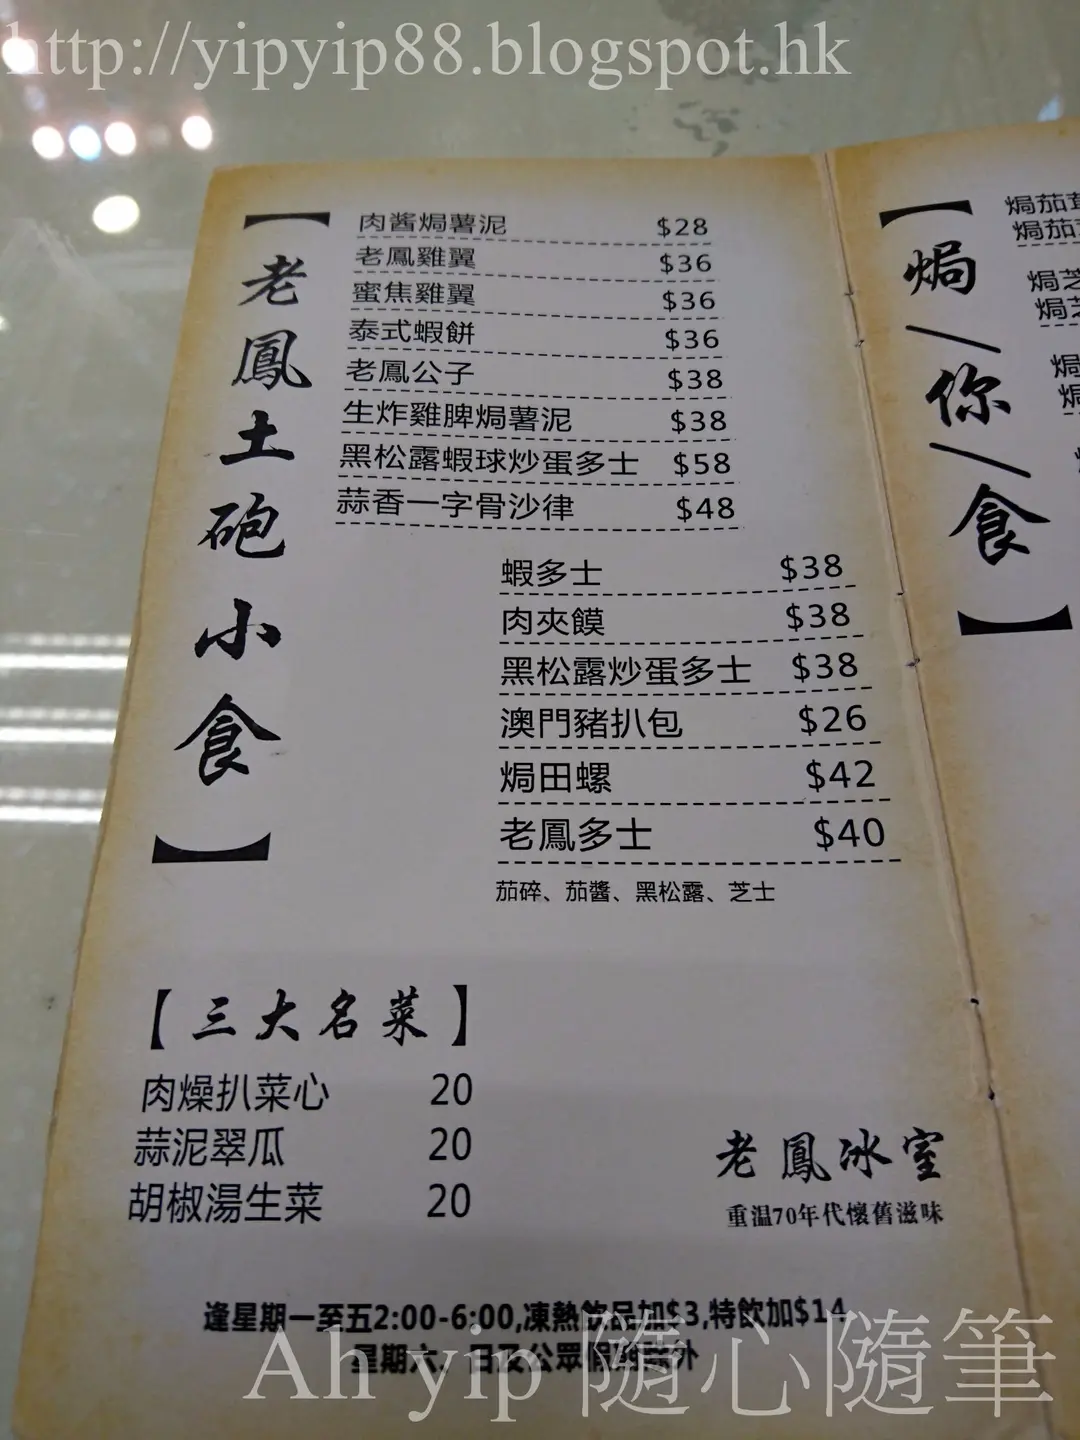 http://yipyip88.blogspot.hk
【老鳳土砲小食】
肉醬焗薯泥 $28
老鳳雞翼 $36
蜜焦雞翼 $36
泰式蝦餅 $36
老鳳公子 $38
生炸雞脾焗薯泥 $38
黑松露蝦球炒蛋多士 $58
蒜香一字骨沙律 $48
蝦多士 $38
肉夾饃 $38
黑松露炒蛋多士 $38
澳門豬扒包 $26
焗田螺 $42
老鳳多士 $40
茄碎、茄醬、黑松露、芝士
【三大名菜】
肉燥扒菜心 20
蒜泥翠瓜 20
胡椒湯生菜 20
老鳳冰室
重温70年代懷舊滋味
逢星期一至五2:00-6:00,凍熱飲品加$3,特飲加$14
星期六、日及公眾假期除外
【焗/你/食】
焗茄
焗茄
焗芝
焗芝
焗
焗
Ah yip 隨心隨筆